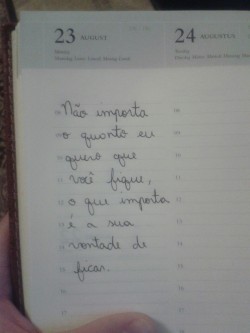 23 AUGUST
24 AUGUSTUS
Não importa
o quanto eu
quero que
você fique,
o que importa
é a sua
vontade de
ficar.